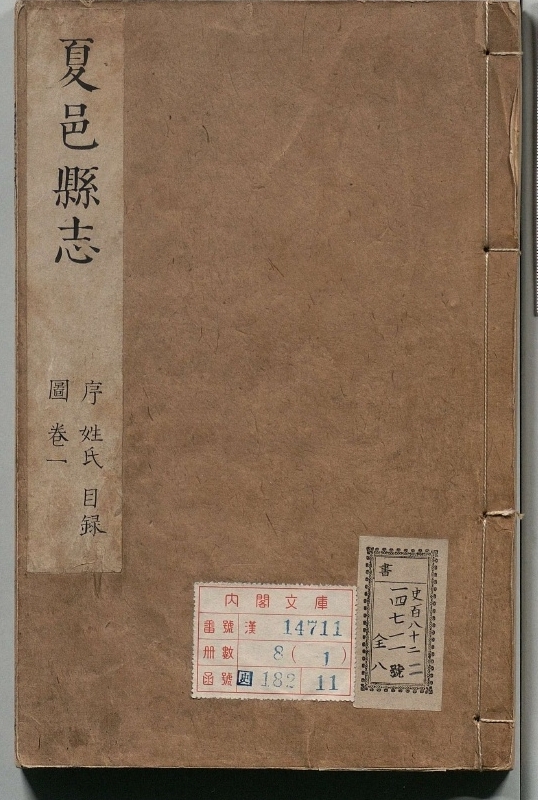 夏邑縣志
序 姓氏 目録
圖 卷一
內閣文庫
番號 漢 14711
冊數 8(1)
函號 史 182 11
書
史百八十二
一四七一一號
全八